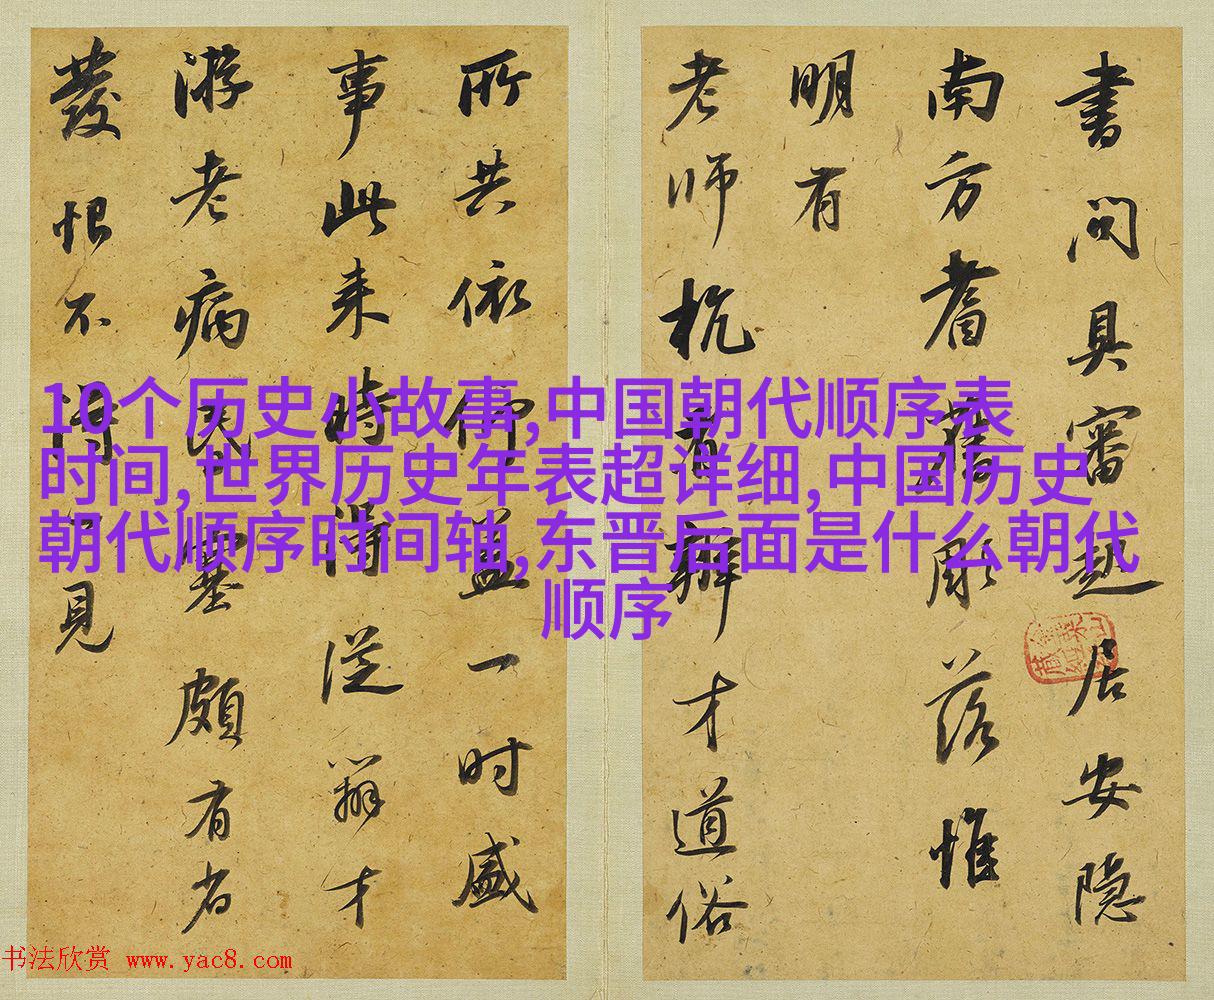 書問具審起居安隱
南方耆舊彫落惟
明有
老師杭有辯才道俗
所共依仰蓋一時盛
事此来時得從辯才
游老病昏塞頗有省
發恨不得見
10个历史小故事,中国朝代顺序表
时间,世界历史年表超详细,中国历史
朝代顺序时间轴,东晋后面是什么朝代
顺序
书法欣赏 www.yac8.com